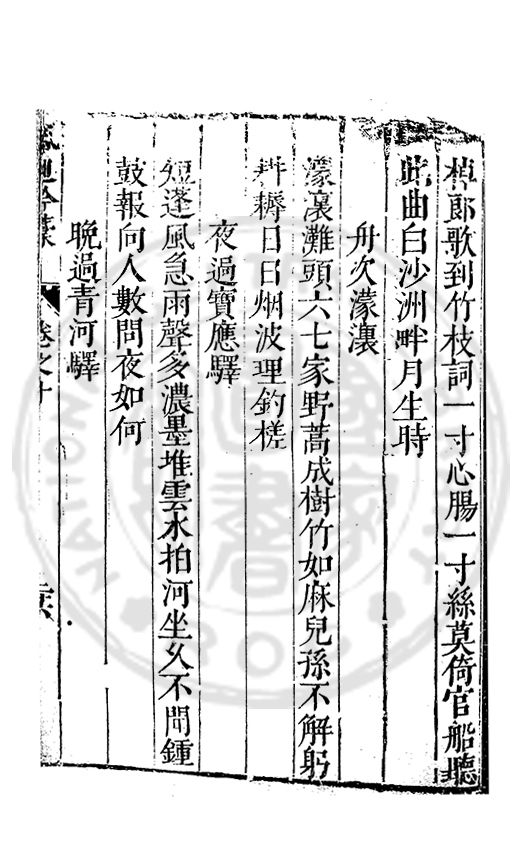 棹郎歌到竹枝詞一寸心腸一寸絲莫倚官船聽
此曲白沙洲畔月生時
舟次濛瀼
濛瀼灘頭六七家野蒿成樹竹如麻兒孫不解躬
耕耨日日烟波理釣槎
夜過寶應驛
短蓬風急雨聲多濃墨堆雲水拍河坐久不聞鍾
鼓報向人數問夜如何
晚過青河驛
卷之十